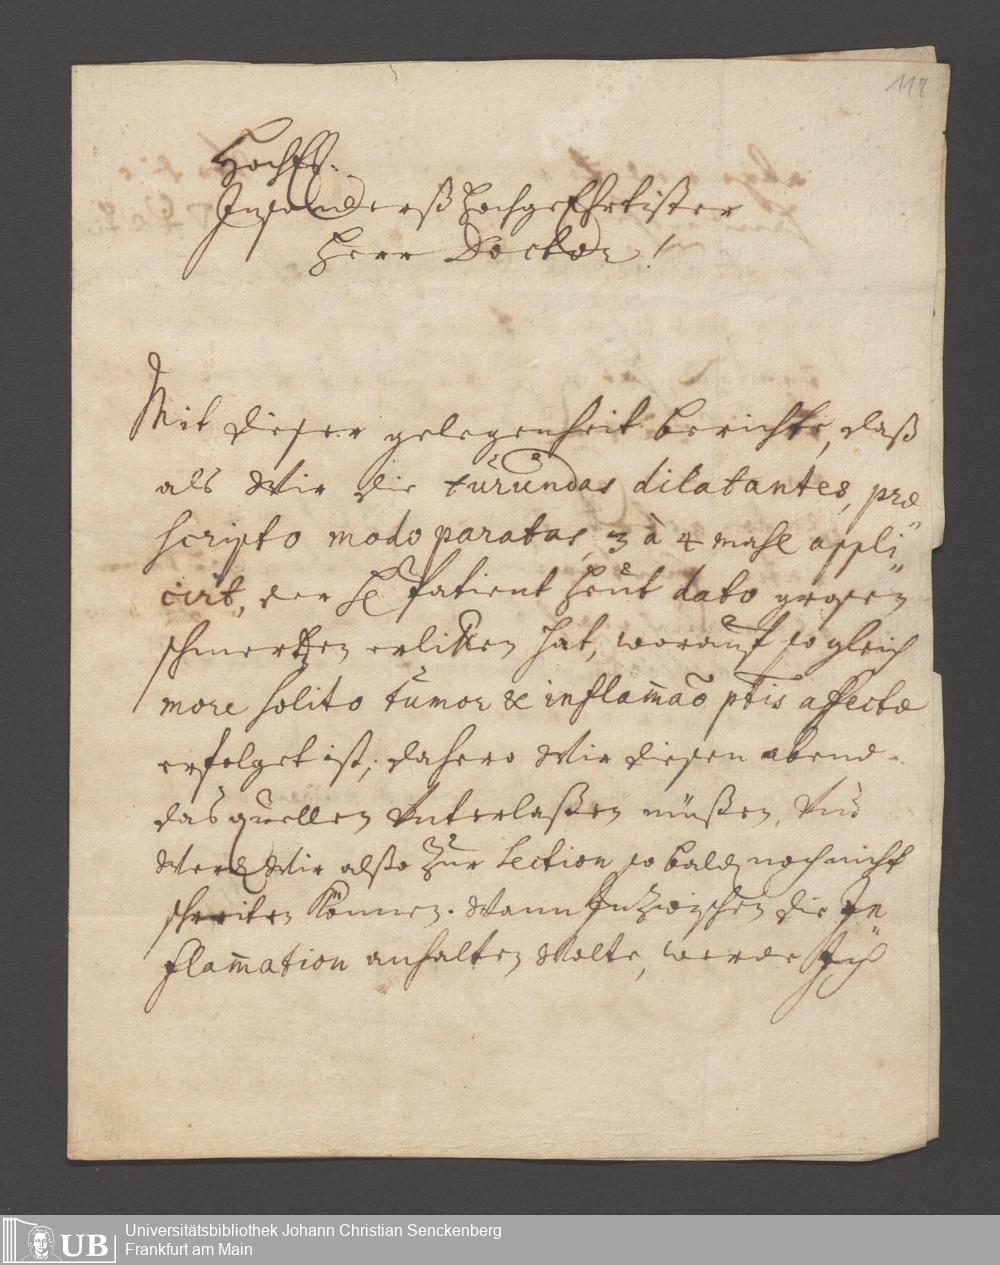 118
Hoch
Insonderß Hochgeehrtister
Herr Doctor!
Mit dieser gelegenheit berichte, daß
als Wir die turundas dilatantes, præ
scripto modo paratas, 3 à 4 mahl appli
cirt, der H Patient heut dato grosen
schmertzen erlitten hat, worauf so gleich
more solito tumor & inflam̄aõ ptis affectæ
erfolget ist, dahero Wir diesen abend
das quellen Unterlaßen müßen, Und
Werd Wir alßo zur Section so bald noch nicht
schreiten Können. Wann Inzwischen die In
flam̄ation anhalten Wolte, werde Ich
UB
Universitätsbibliothek Johann Christian Senckenberg
Frankfurt am Main